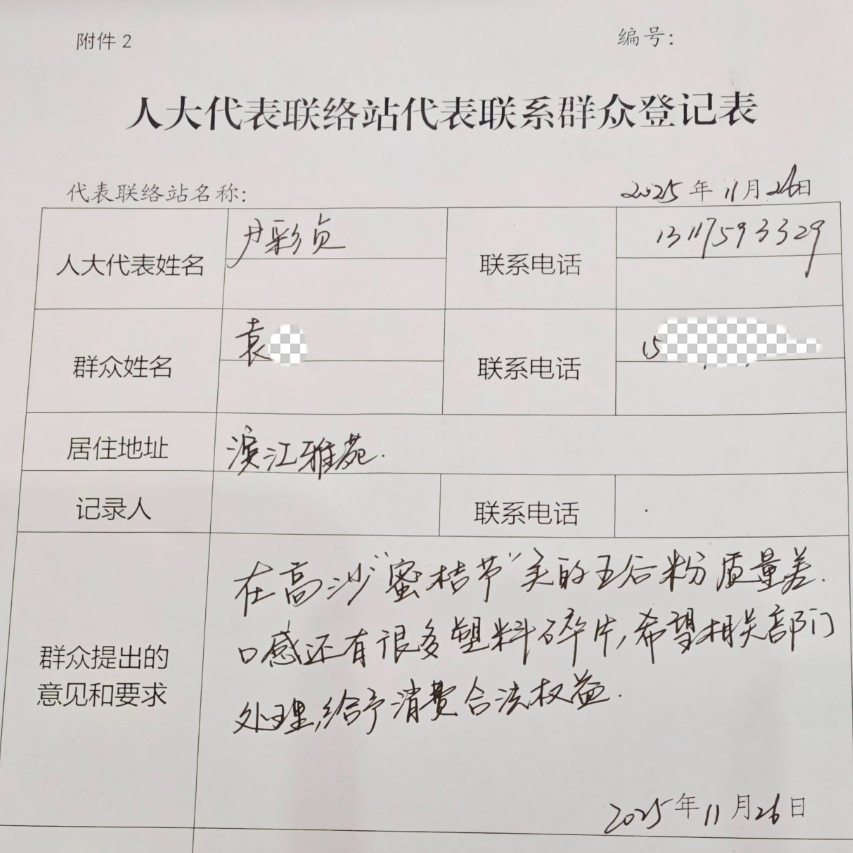 附件2 编号:
人大代表联络站代表联系群众登记表
代表联络站名称: 2025年11月26日
人大代表姓名 尹彩贞 联系电话 13117593329
群众姓名 袁 联系电话 15
居住地址 滨江雅苑.
记录人 联系电话
群众提出的
意见和要求
在高沙"蜜桔节"买的五谷粉质量差.
口感还有很多塑料碎片,希望相关部门
处理,给予消费合法权益.
2025年11月26日